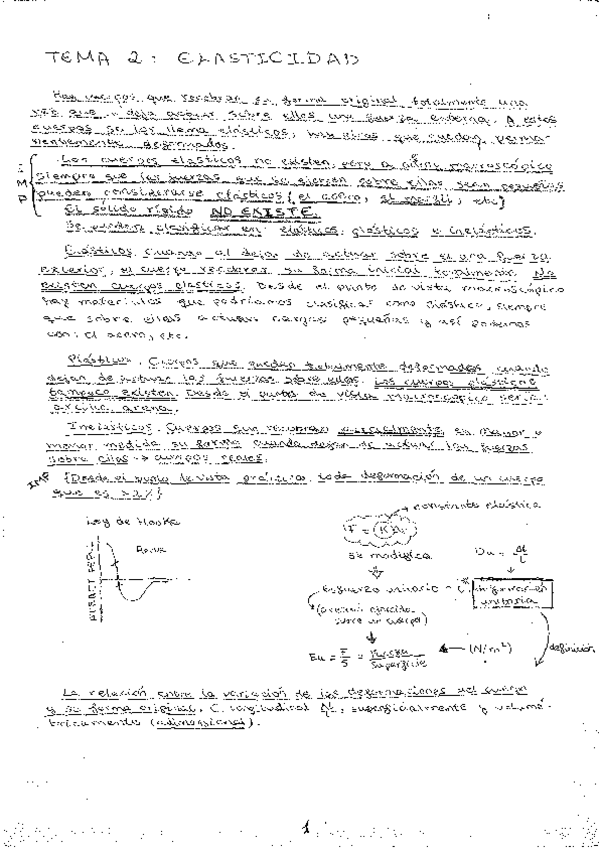 TEMA 2: ELASTICIDAD
Hay cuerpos que recobran su forma original totalmente una
vez que deja actuar sobre ellos una fuerza externa. A estos
cuerpos se les llama elásticos, hay otros que quedan perma-
nentemente deformados.
IMP
Los cuerpos elásticos no existen, pero a nivel macroscópico
siempre que las fuerzas que se ejerzan sobre ellos sean pequeñas
pueden considerarse elásticos (el acero, etc)
El sólido rígido NO EXISTE.
Se pueden clasificar en: elásticos, plásticos e inelásticos.
Elásticos. Cuando al dejar de actuar sobre él una fuerza
exterior, el cuerpo recobra su forma inicial totalmente. No
existen cuerpos elásticos. Desde el punto de vista macroscópico
hay materiales que podríamos clasificar como elástico, siempre
que sobre ellos actúen cargas pequeñas y así podemos
con: el acero, etc.
Plásticos. Cuerpos que quedan totalmente deformados cuando
dejan de actuar las fuerzas sobre ellos. Los cuerpos plásticos
tampoco existen. Desde el punto de vista macroscópico sería:
arcilla, arena.
Inelásticos. Cuerpos que recobran parcialmente en mayor o
menor medida su forma cuando dejan de actuar las fuerzas
sobre ellos → cuerpos reales.
IMP
{Desde el punto de vista práctico, toda deformación de un cuerpo
que es >2%}
Ley de Hooke
constante elástica
se modifica
Du = Δl/L
Esfuerzo unitario = C.
deformación
unitaria
*(presión ejercida
sobre un cuerpo)
Eu = F/S = Fuerza/Superficie
(N/m²)
definición
La relación entre la variación de las deformaciones del cuerpo
y su forma original. C. longitudinal Δl, superficialmente y volumé-
tricamente (adimensional).
1